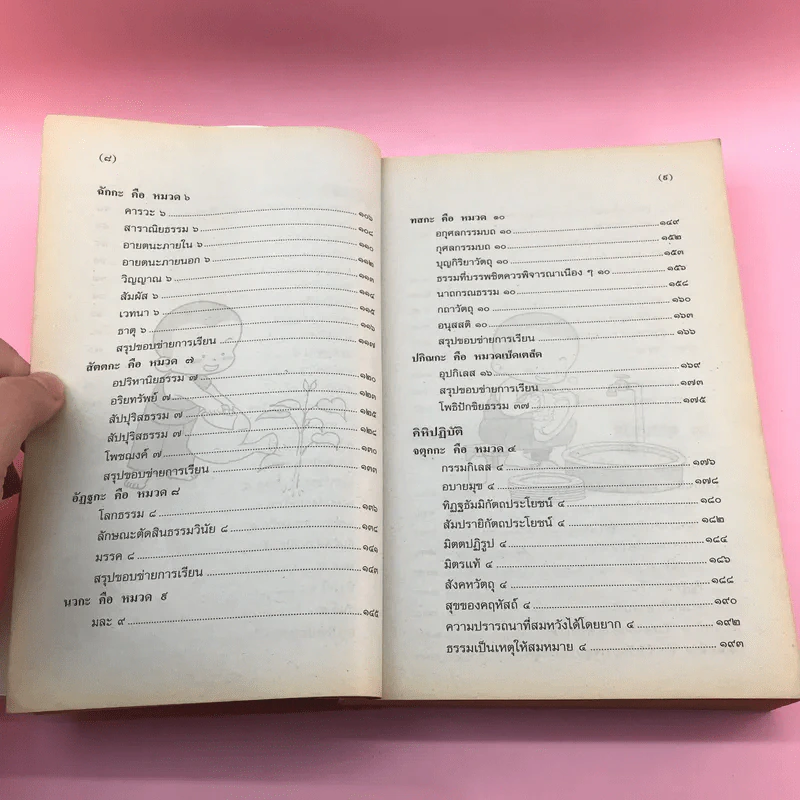 (๘)
ฉักกะ คือ หมวด ๖
คารวะ ๖ ........ ๑๐๖
สาราณิยธรรม ๖ ........ ๑๐๘
อายตนะภายใน ๖ ........ ๑๑๐
อายตนะภายนอก ๖ ........ ๑๑๒
วิญญาณ ๖ ........ ๑๑๓
สัมผัส ๖ ........ ๑๑๔
เวทนา ๖ ........ ๑๑๕
ธาตุ ๖ ........ ๑๑๖
สรุปขอบข่ายการเรียน ........ ๑๑๗
สัตตกะ คือ หมวด ๗
อปริหานิยธรรม ๗ ........ ๑๒๐
อริยทรัพย์ ๗ ........ ๑๒๓
สัปปุริสธรรม ๗ ........ ๑๒๕
สัปปุริสธรรม ๗ ........ ๑๒๘
โพชฌงค์ ๗ ........ ๑๓๐
สรุปขอบข่ายการเรียน ........ ๑๓๓
อัฏฐกะ คือ หมวด ๘
โลกธรรม ๘ ........ ๑๓๖
ลักษณะตัดสินธรรมวินัย ๘ ........ ๑๓๘
มรรค ๘ ........ ๑๔๑
สรุปขอบข่ายการเรียน ........ ๑๔๓
นวกะ คือ หมวด ๙
มละ ๙ ........ ๑๔๕
(๙)
ทสกะ คือ หมวด ๑๐
อกุศลกรรมบถ ๑๐ ........ ๑๔๙
กุศลกรรมบถ ๑๐ ........ ๑๕๒
บุญกิริยาวัตถุ ๑๐ ........ ๑๕๓
ธรรมที่บรรพชิตควรพิจารณาเนือง ๆ ๑๐ ........ ๑๕๖
นาถกรณธรรม ๑๐ ........ ๑๕๘
กถาวัตถุ ๑๐ ........ ๑๖๐
อนุสสติ ๑๐ ........ ๑๖๓
สรุปขอบข่ายการเรียน ........ ๑๖๖
ปกิณกะ คือ หมวดเบ็ดเตล็ด
อุปกิเลส ๑๖ ........ ๑๖๙
สรุปขอบข่ายการเรียน ........ ๑๗๓
โพธิปักขิยธรรม ๓๗ ........ ๑๗๕
คิหิปฏิบัติ
จตุกกะ คือ หมวด ๔
กรรมกิเลส ๔ ........ ๑๗๖
อบายมุข ๔ ........ ๑๗๘
ทิฏฐธัมมิกัตถประโยชน์ ๔ ........ ๑๘๐
สัมปรายิกัตถประโยชน์ ๔ ........ ๑๘๒
มิตตปฏิรูป ๔ ........ ๑๘๔
มิตรแท้ ๔ ........ ๑๘๖
สังคหวัตถุ ๔ ........ ๑๘๘
สุขของคฤหัสถ์ ๔ ........ ๑๙๐
ความปรารถนาที่สมหวังได้โดยยาก ๔ ........ ๑๙๒
ธรรมเป็นเหตุให้สมหมาย ๔ ........ ๑๙๓